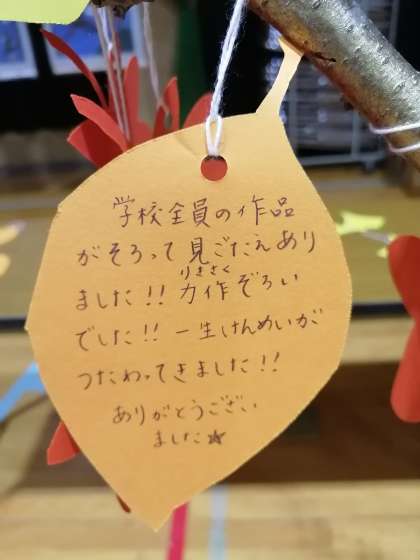 学校全員の作品
がそろって見ごたえあり
ました!! 力作ぞろい
りきさく
でした!! 一生けんめいが
つたわってきました!!
ありがとうござい
ました☆